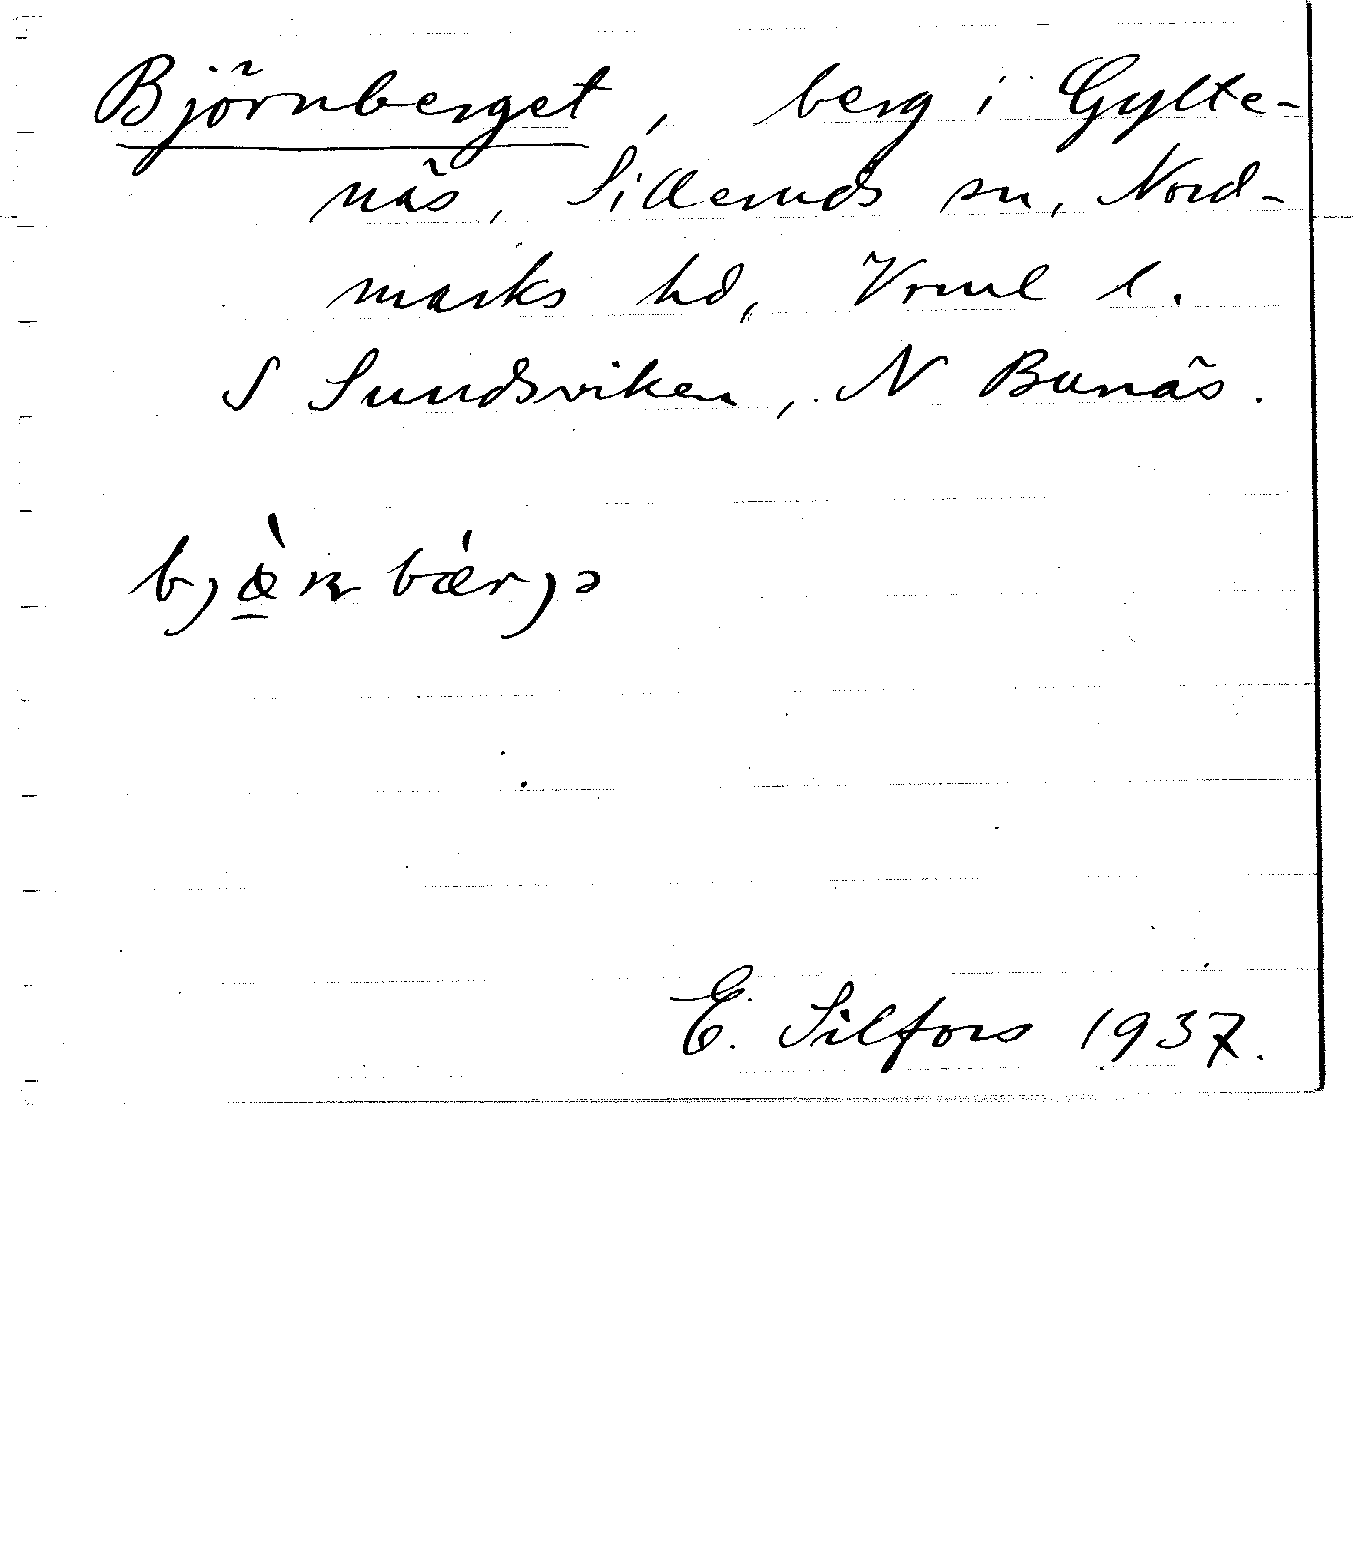 Björnberget, berg i Gylte-
näs, Silleruds sn, Nord-
marks hd, Vrml l.
S Sundsviken, N Bunäs.
E. Silfors 1937.